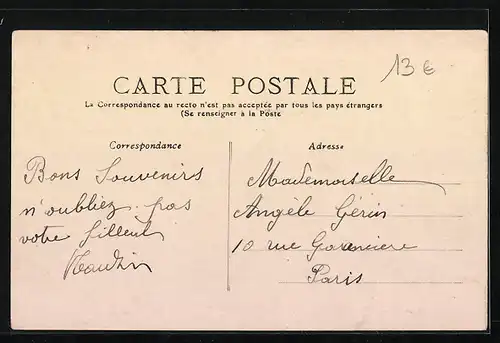 13 €
CARTE POSTALE
La Correspondance au recto n'est pas acceptée par tous les pays étrangers
(Se renseigner à la Poste
Correspondance
Bons Souvenirs
n'oubliez pas
votre filleul
Adresse
Mademoiselle
Angèle Gérin
10 rue Garancière
Paris